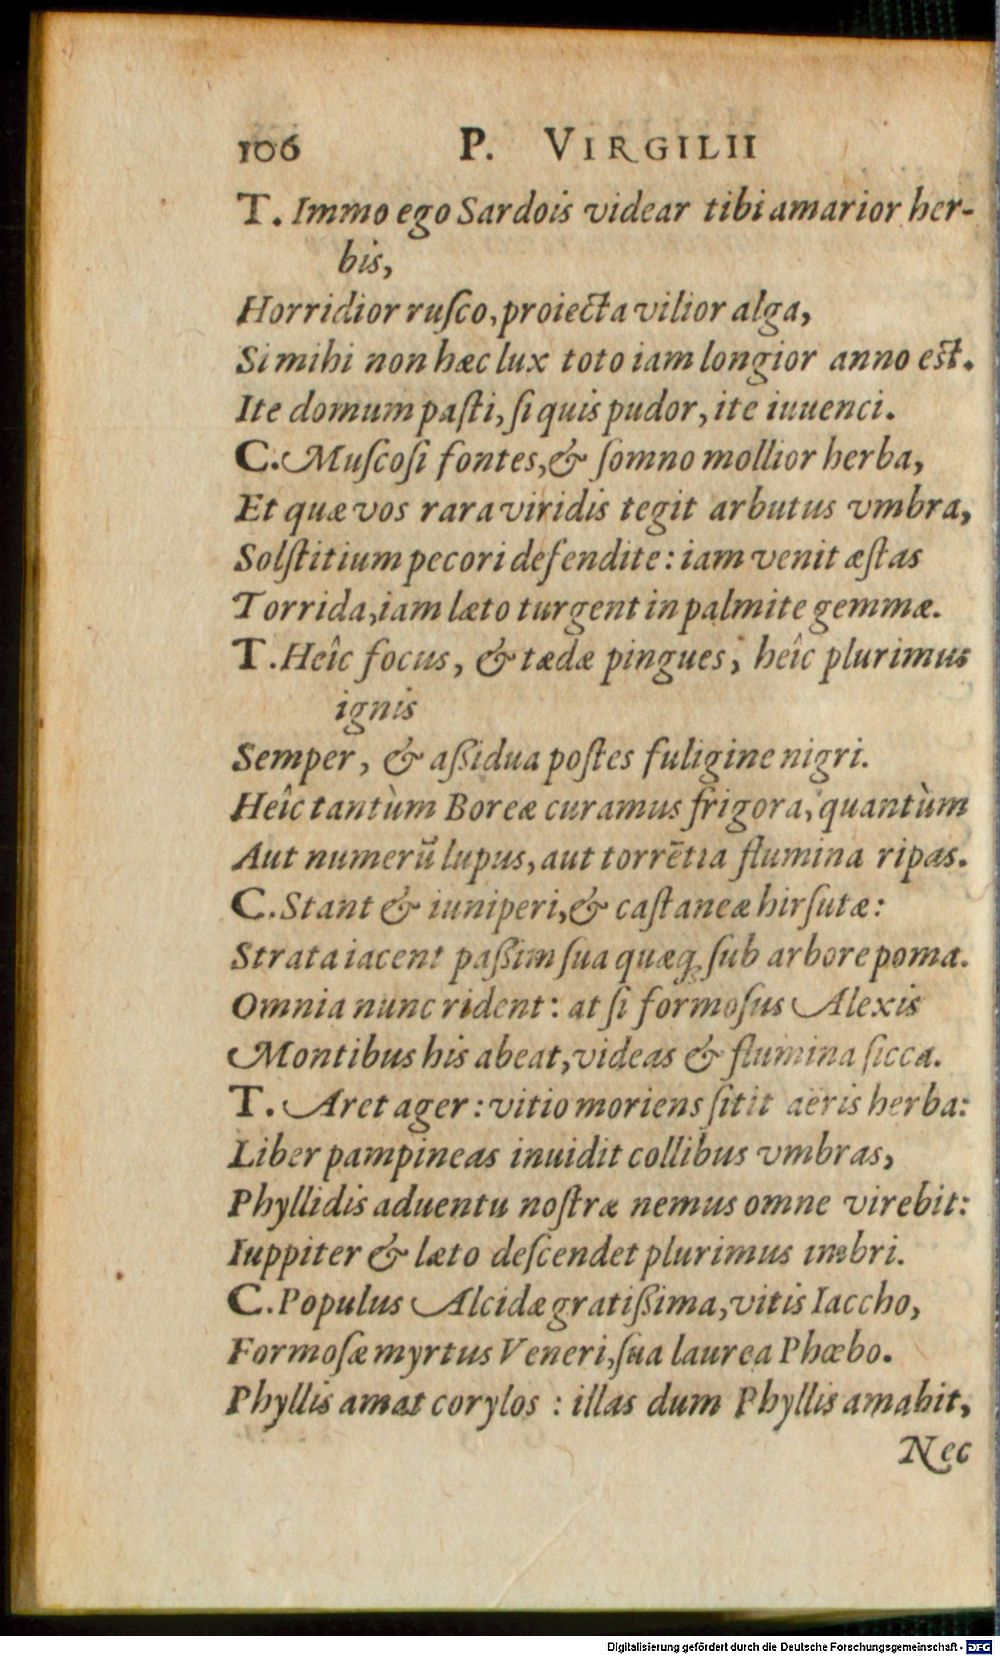 106 P. VIRGILII
T. Immo ego Sardois videar tibi amarior her-
bis,
Horridior ruſco, proiecta vilior alga,
Si mihi non hæc lux toto iam longior anno est.
Ite domum paſti, ſi quis pudor, ite iuuenci.
C. Muſcoſi fontes, & ſomno mollior herba,
Et quæ vos rara viridis tegit arbutus vmbra,
Solſtitium pecori defendite: iam venit æſtas
Torrida, iam læto turgent in palmite gemmæ.
T. Heîc focus, & tædæ pingues, heîc plurimus
ignis
Semper, & aßidua poſtes fuligine nigri.
Heîc tantùm Boreæ curamus frigora, quantùm
Aut numerũ lupus, aut torrẽtia flumina ripas.
C. Stant & iuniperi, & caſtaneæ hirſutæ:
Strata iacent paßim ſua quæq; ſub arbore poma.
Omnia nunc rident: at ſi formoſus Alexis
Montibus his abeat, videas & flumina ſicca.
T. Aret ager: vitio moriens ſitit aëris herba:
Liber pampineas inuidit collibus vmbras,
Phyllidis aduentu noſtræ nemus omne virebit:
Iuppiter & læto deſcendet plurimus imbri.
C. Populus Alcidæ gratißima, vitis Iaccho,
Formoſæ myrtus Veneri, ſua laurea Phœbo.
Phyllis amat corylos: illas dum Phyllis amabit,
Nec
Digitalisierung gefördert durch die Deutsche Forschungsgemeinschaft - DFG